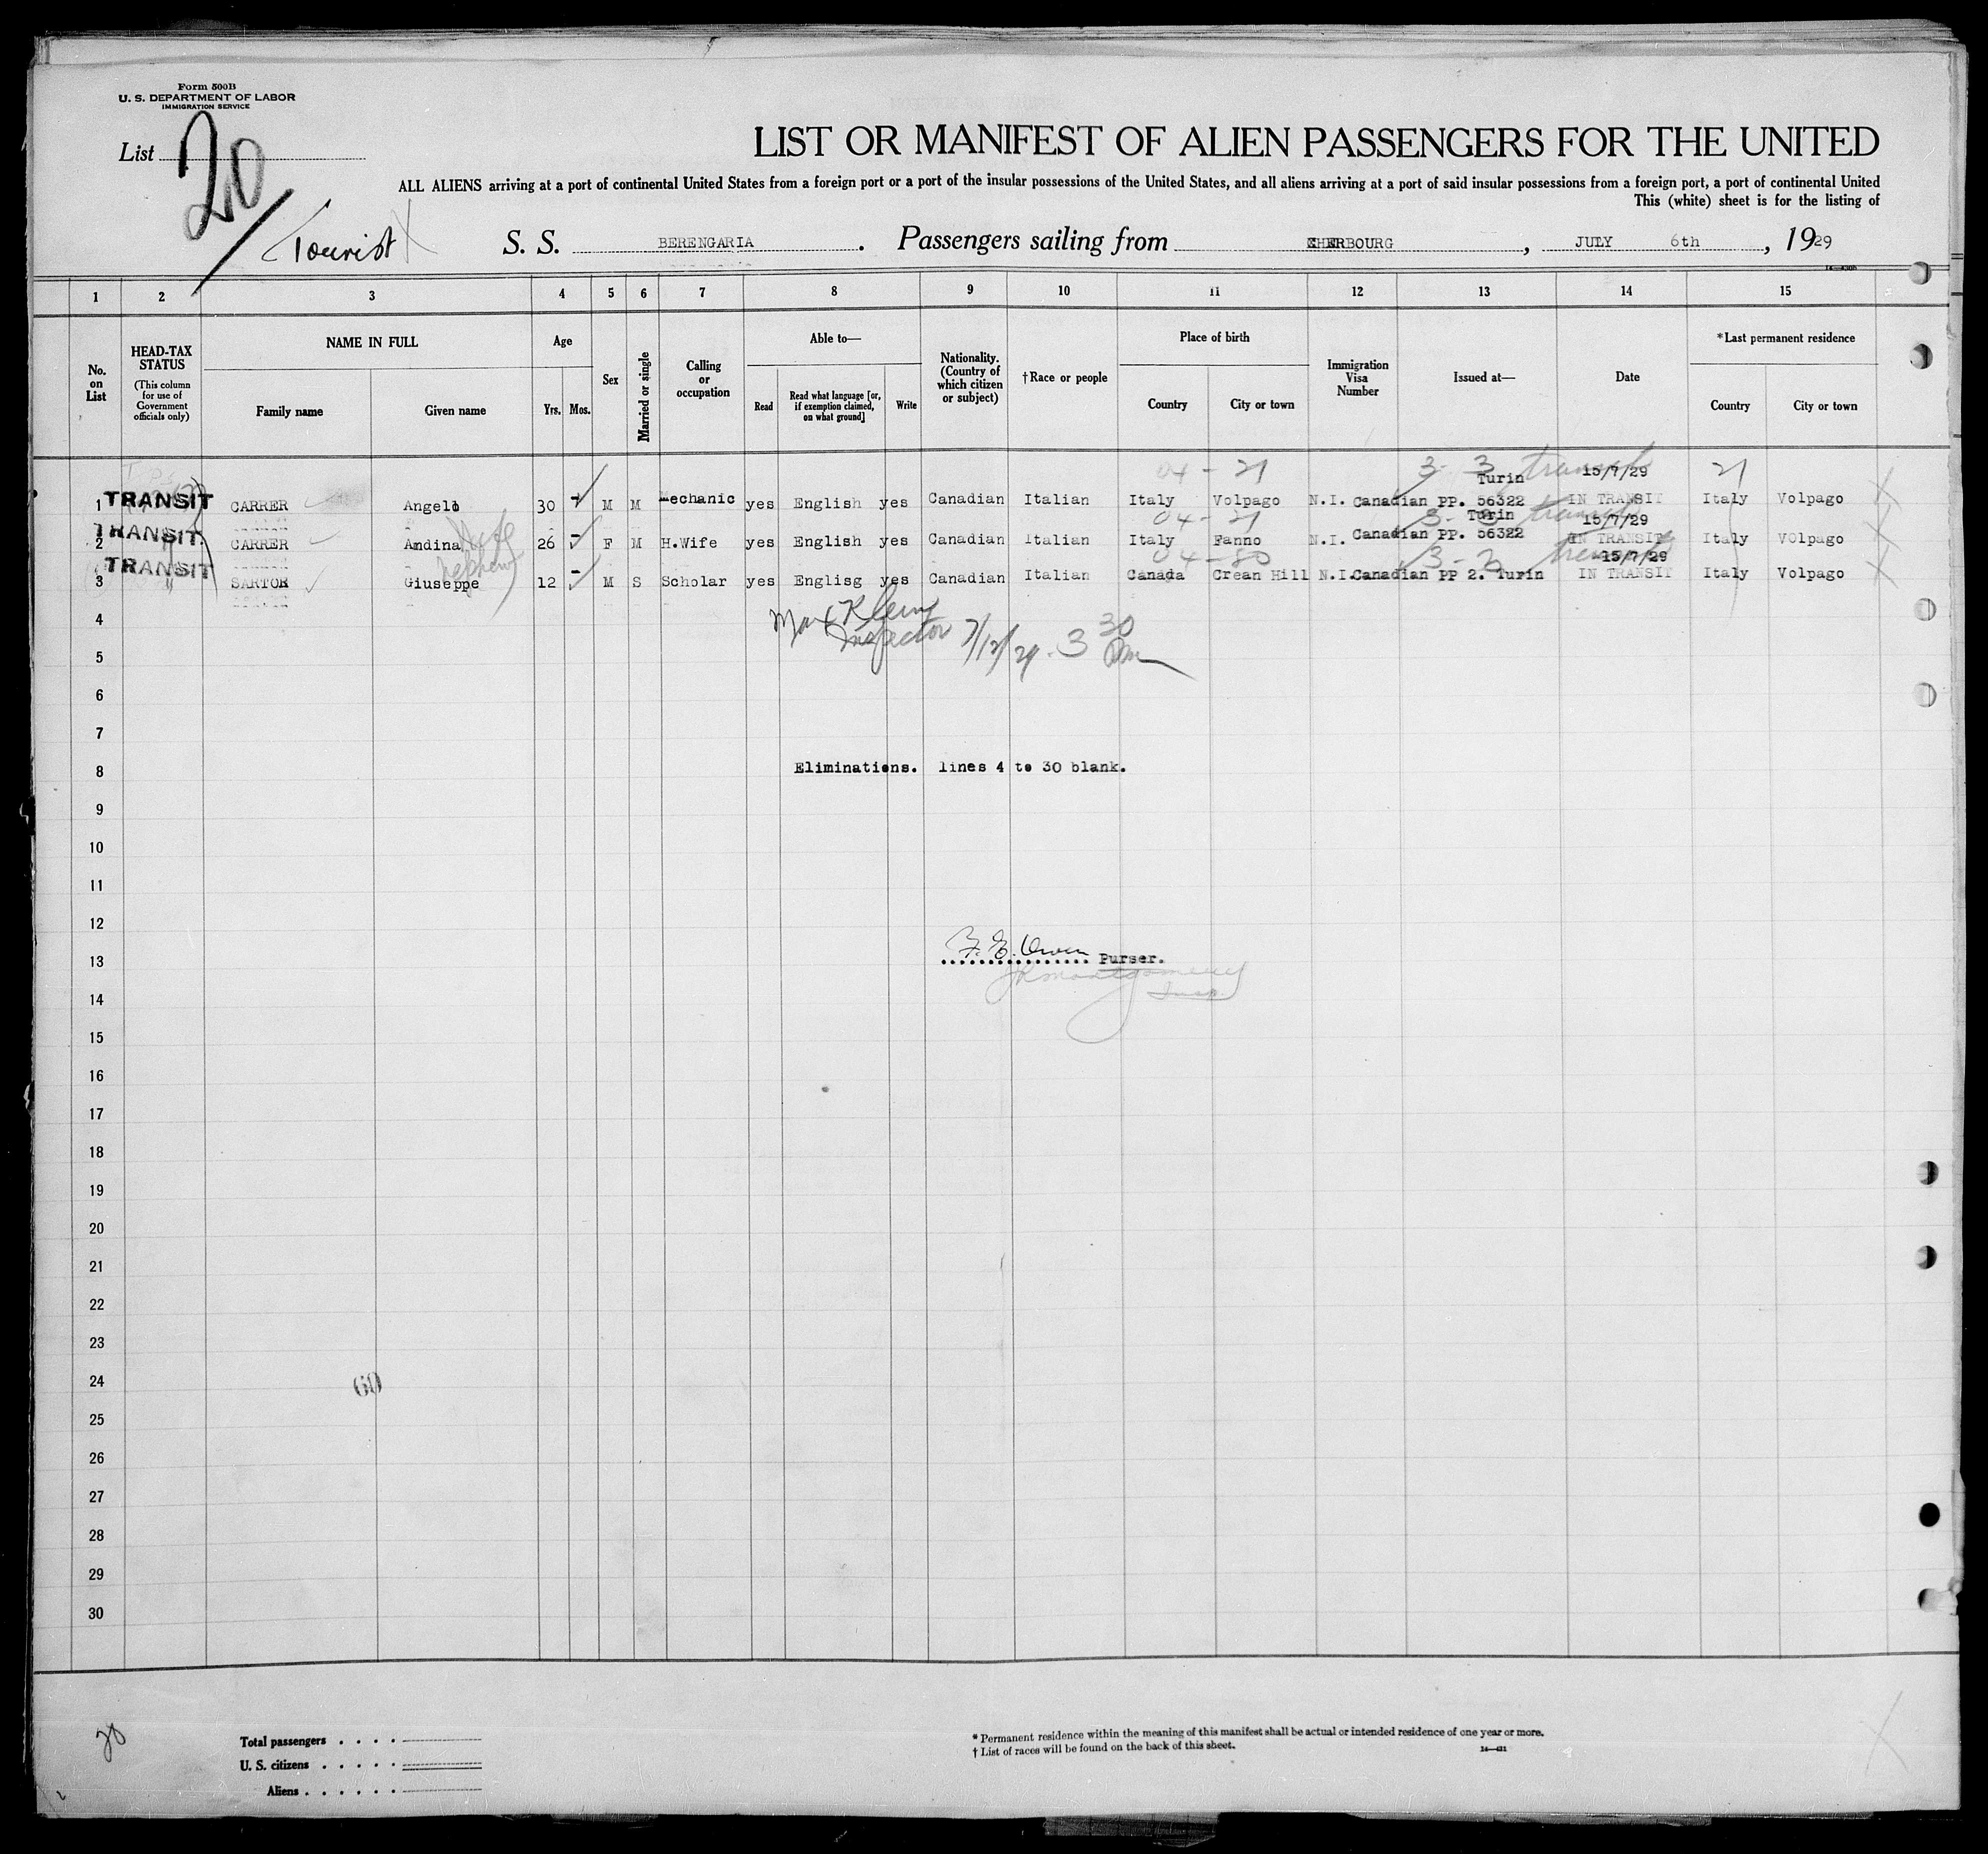 Form 500B
U. S. DEPARTMENT OF LABOR
IMMIGRATION SERVICE
List 20
Tourist
LIST OR MANIFEST OF ALIEN PASSENGERS FOR THE UNITED
ALL ALIENS arriving at a port of continental United States from a foreign port or a port of the insular possessions of the United States, and all aliens arriving at a port of said insular possessions from a foreign port, a port of continental United
This (white) sheet is for the listing of
S. S. BERENGARIA. Passengers sailing from CHERBOURG, JULY 6th, 1929
1 2 3 4 5 6 7 8 9 10 11 12 13 14 15
No. on List
HEAD-TAX STATUS (This column for use of Government officials only)
NAME IN FULL
Family name Given name
Age
Yrs. Mos.
Sex
Married or single
Calling or occupation
Able to—
Read Read what language [or, if exemption claimed, on what ground] Write
Nationality. (Country of which citizen or subject)
†Race or people
Place of birth
Country City or town
Immigration Visa Number
Issued at—
Date
*Last permanent residence
Country City or town
04 - 21 3 - 3 transit 15/7/29 21
Turin
1 TRANSIT CARRER Angelo 30 - M M Mechanic yes English yes Canadian Italian Italy Volpago N.I. Canadian PP. 56322 IN TRANSIT Italy Volpago
04 - 21 3 - 3 Turin transit 15/7/29
2 TRANSIT CARRER Amdina Wife 26 - F M H.Wife yes English yes Canadian Italian Italy Fanno N.I. Canadian PP. 56322 IN TRANSIT Italy VOlpago
04 - 80 3 - 2 transit 15/7/29
3 TRANSIT SARTOR Giuseppe nephew 12 - M S Scholar yes Englisg yes Canadian Italian Canada Crean Hill N.I. Canadian PP 2. Turin IN TRANSIT Italy Volpago
4
Max Klein
Inspector 7/12/29 - 3 30 Pm
5
6
7
8 Eliminations. lines 4 to 30 blank.
9
10
11
12
F. E. Owen
13 Purser.
JR Montgomery
Insp.
14
15
16
17
18
19
20
21
22
23
24
25
26
27
28
29
30
20
Total passengers
U. S. citizens
Aliens
* Permanent residence within the meaning of this manifest shall be actual or intended residence of one year or more.
† List of races will be found on the back of this sheet.